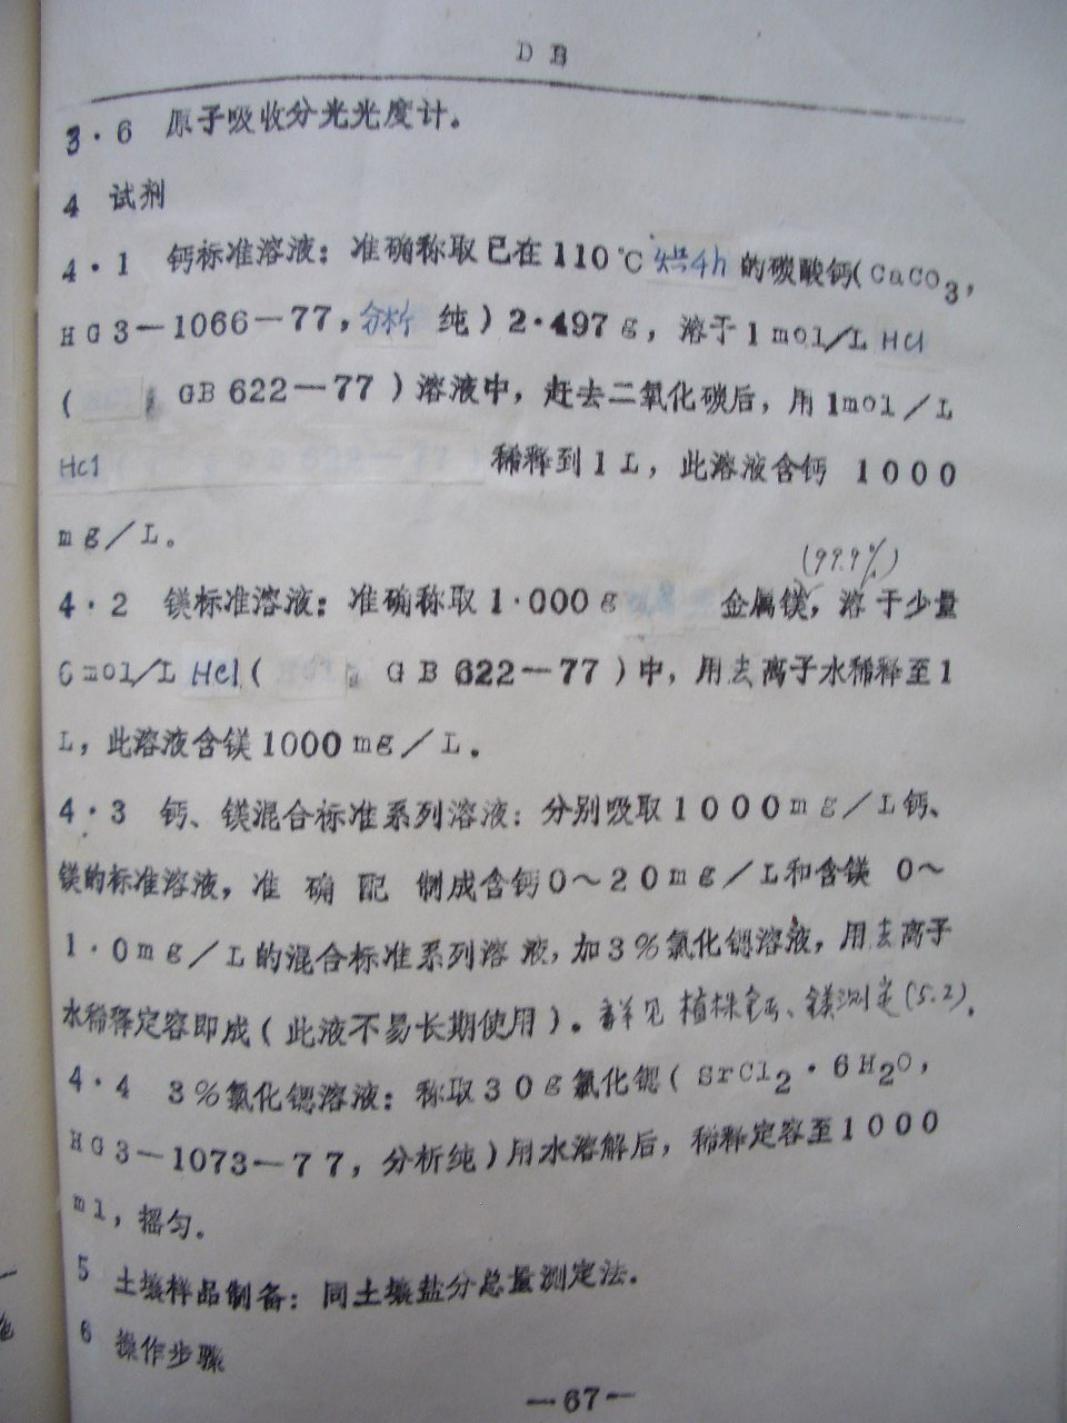 DB
3·6 原子吸收分光光度计。
4 试剂
4·1 钙标准溶液：准确称取已在110℃烘4h的碳酸钙（CaCO3，
HG3—1066—77，分析纯）2·497g，溶于1mol/L HCl
（ GB622—77）溶液中，赶去二氧化碳后，用1mol／L
HCl 稀释到1L，此溶液含钙 1000
mg／L。
(99.9%)
4·2 镁标准溶液：准确称取1·000g 金属镁，溶于少量
6mol/L HCl（ GB622—77）中，用去离子水稀释至1
L，此溶液含镁1000mg／L。
4·3 钙、镁混合标准系列溶液：分别吸取1000mg／L钙、
镁的标准溶液，准确配制成含钙0～20mg／L和含镁 0～
1·0mg／L的混合标准系列溶液，加3%氯化锶溶液，用去离子
水稀释定容即成（此液不易长期使用）。详见植株钙、镁测定(5.2).
4·4 3%氯化锶溶液：称取30g氯化锶（SrCl2·6H2O，
HG3—1073—77，分析纯）用水溶解后，稀释定容至1000
ml，摇匀。
5 土壤样品制备：同土壤盐分总量测定法.
6 操作步骤
—67—